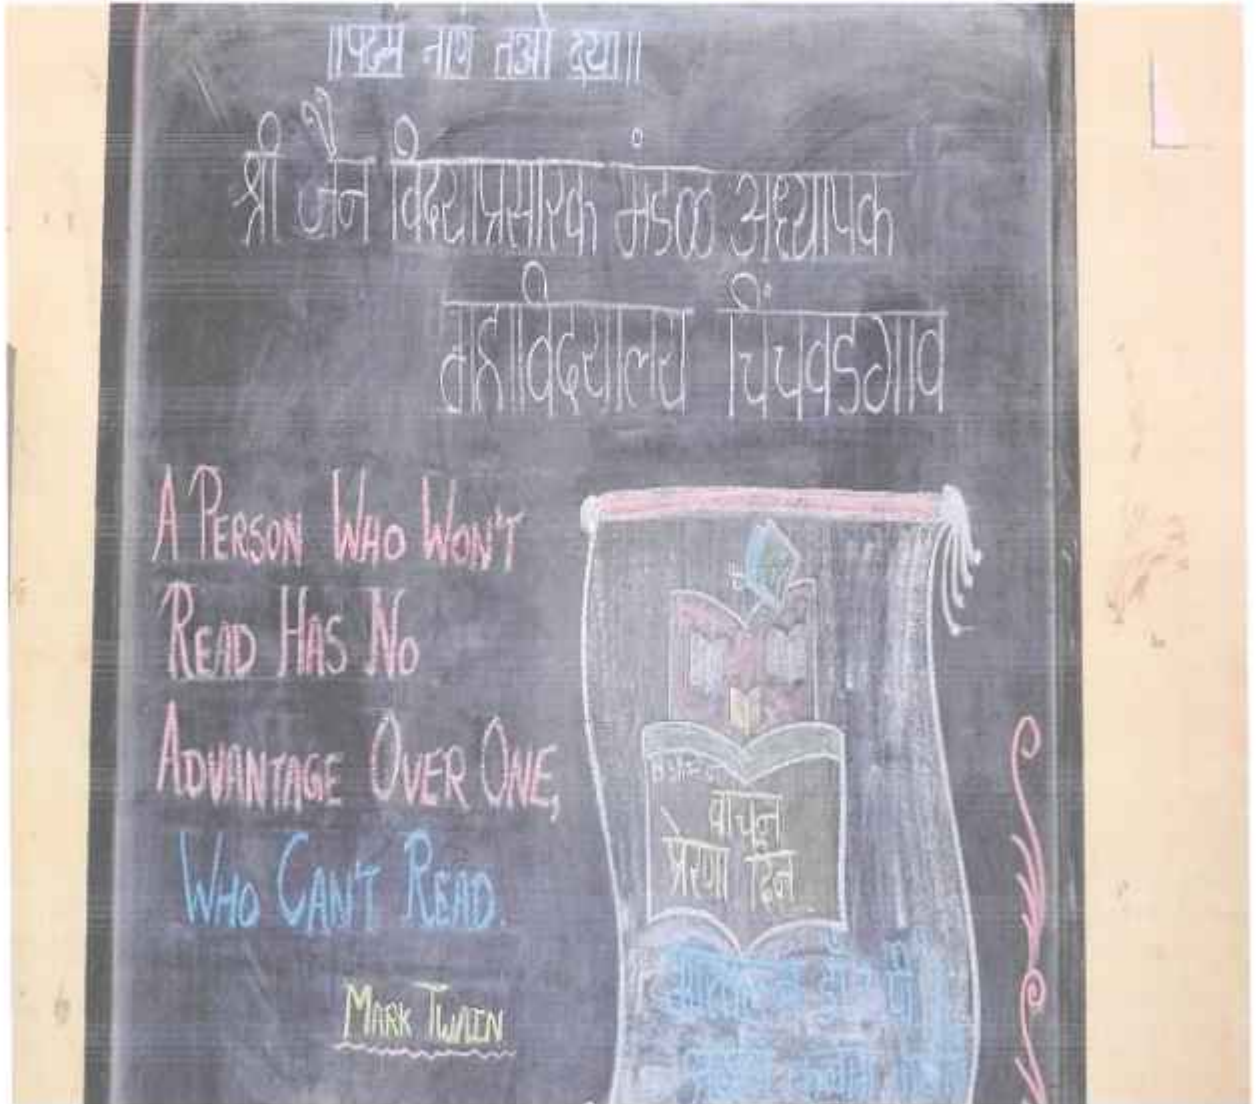 ॥पढमं नाणं तओ दया॥
श्री जैन विद्याप्रसारक मंडळ अध्यापक
महाविद्यालय चिंचवडगाव
A PERSON WHO WON'T
READ HAS NO
ADVANTAGE OVER ONE,
WHO CAN'T READ.
MARK TWAIEN
वाचन
प्रेरणा दिन